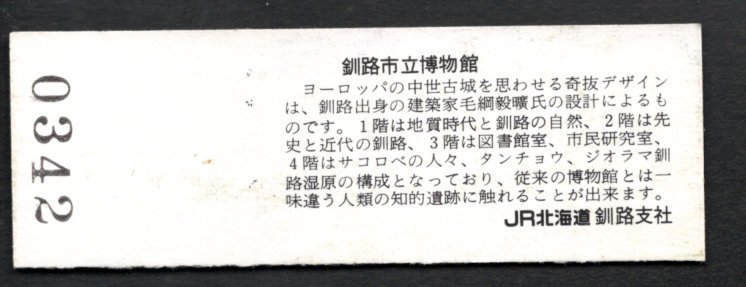 0342
釧路市立博物館
ヨーロッパの中世古城を思わせる奇抜デザイン
は、釧路出身の建築家毛綱毅曠氏の設計によるも
のです。1階は地質時代と釧路の自然、2階は先
史と近代の釧路、3階は図書館室、市民研究室、
4階はサコロベの人々、タンチョウ、ジオラマ釧
路湿原の構成となっており、従来の博物館とは一
味違う人類の知的遺跡に触れることが出来ます。
JR北海道 釧路支社